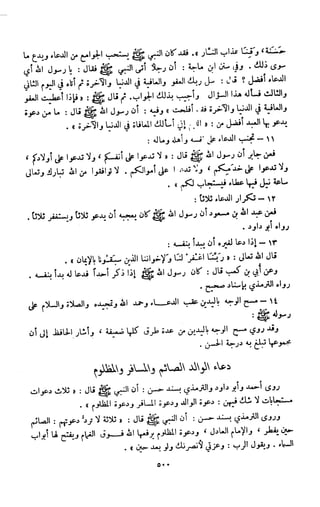 حسنة، وقنا عذاب النار ». فقد كان النبي ﷺ يستحب الجوامع من الدعاء ويدع ما
سوى ذلك. وفي سنن ابن ماجة: أن رجلا أتى النبي ﷺ فقال: يا رسول الله أي
الدعاء أفضل؟ قال: سل ربك العفو والعافية في الدنيا والآخرة ثم أتاه في اليوم الثاني
والثالث فسأله هذا السؤال وأجيب بذلك الجواب. ثم قال ﷺ: « فإذا أعطيت العفو
والعافية في الدنيا والآخرة فقد أفلحت » وفيه: أن رسول الله ﷺ قال: ما من دعوة
يدعو بها العبد أفضل من: « اللهم إني أسألك المعافاة في الدنيا والآخرة ».
١١ – تجنب الدعاء على نفسه وأهله وماله:
فعن جابر أن رسول الله ﷺ قال: « لا تدعوا على أنفسكم، ولا تدعوا على أولادكم،
ولا تدعوا على خدمكم، ولا تدعوا على أموالكم. لا توافقوا من الله تبارك وتعالى
ساعة نيل فيها عطاء فيستجاب لكم ».
١٢ – تكرار الدعاء ثلاثا:
فعن عبد الله بن مسعود أن رسول الله ﷺ كان يعجبه أن يدعو ثلاثا ويستغفر ثلاثا.
رواه أبو داود.
١٣ – إذا دعا لغيره أن يبدأ بنفسه:
قال الله تعالى: « ربنا اغفر لنا ولإخواننا الذين سبقونا بالإيمان ».
وعن أبي بن كعب قال: كان رسول الله ﷺ إذا ذكر أحدا فدعا له بدأ بنفسه.
رواه الترمذي بإسناد صحيح.
١٤ – مسح الوجه باليدين عقب الدعاء وحمد الله وتمجيده والصلاة والسلام على
رسوله ﷺ:
وقد روي مسح الوجه باليدين من عدة طرق كلها ضعيفة، وأشار الحافظ إلى أن
مجموعها تبلغ به درجة الحسن.
دعاء الوالد والصائم والمسافر والمظلوم
روى أحمد وأبو داود والترمذي بسند حسن: أن النبي ﷺ قال: « ثلاث دعوات
مستجابات لا شك فيهن: دعوة الوالد ودعوة المسافر ودعوة المظلوم ».
وروى الترمذي بسند حسن: أن النبي ﷺ قال: « ثلاثة لا ترد دعوتهم: الصائم
حين يفطر، والإمام العادل، ودعوة المظلوم يرفعها الله فوق الغمام ويفتح لها أبواب
السماء. ويقول الرب: وعزتي لأنصرنك ولو بعد حين ».
٥٠٠